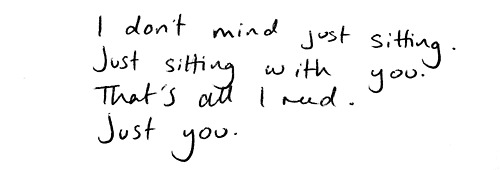 I don't mind just sitting.
Just sitting with you.
That's all I need.
Just you.